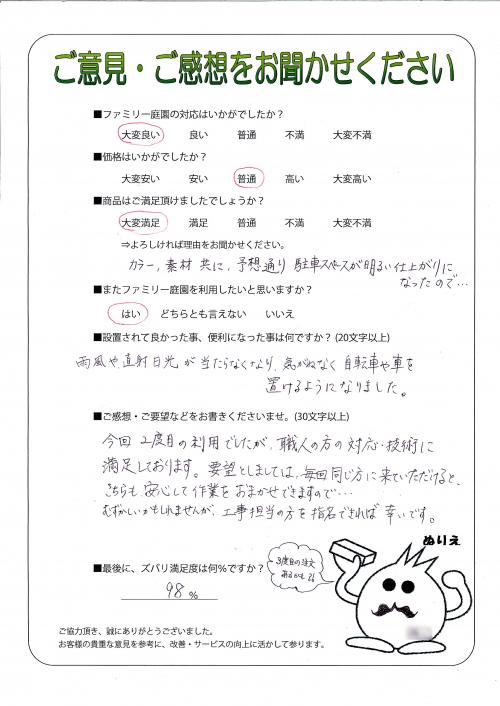 ご意見・ご感想をお聞かせください
■ファミリー庭園の対応はいかがでしたか？
大変良い 良い 普通 不満 大変不満
■価格はいかがでしたか？
大変安い 安い 普通 高い 大変高い
■商品はご満足頂けましたでしょうか？
大変満足 満足 普通 不満 大変不満
⇒よろしければ理由をお聞かせください。
カラー，素材 共に，予想通り 駐車スペースが明るい仕上がりに
なったので…
■またファミリー庭園を利用したいと思いますか？
はい どちらとも言えない いいえ
■設置されて良かった事、便利になった事は何ですか？(20文字以上)
雨風や直射日光が当たらなくなり、気がねなく自転車や車を
置けるようになりました。
■ご感想・ご要望などをお書きくださいませ。(30文字以上)
今回2度目の利用でしたが、職人の方の対応・技術に
満足しております。要望としましては、毎回同じ方に来ていただけると、
こちらも安心して作業をおまかせできますので…
むずかしいかもしれませんが、工事担当の方を指名できれば幸いです。
ぬりえ
3度目の注文
あるかも
■最後に、ズバリ満足度は何%ですか？
98 %
ご協力頂き、誠にありがとうございました。
お客様の貴重な意見を参考に、改善・サービスの向上に活かして参ります。